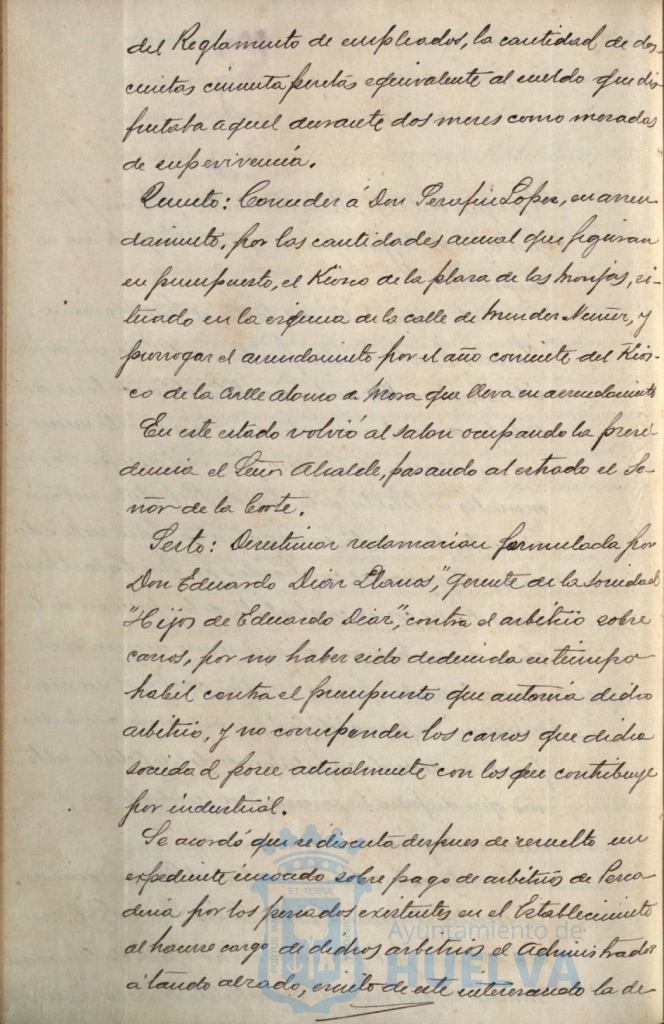 del Reglamento de empleados, la cantidad de dos-
cientas cincuenta pesetas equivalente al sueldo que dis-
frutaba aquel durante dos meses como mesadas
de supervivencia.
Quinto: Conceder á Don Serafin Lopez, en arren-
damiento, por las cantidades anual que figuran
en presupuesto, el Kiosco de la plaza de las Monjas, si-
tuado en la esquina de la calle de Mendez Nuñez, y
prorrogar el arrendamiento por el año corriente del Kios-
co de la calle Alonso de Mora que lleva en arrendamiento
En este estado volvió al salon ocupando la presi-
dencia el Señor Alcalde, pasando al estrado el Se-
ñor de la Corte.
Sesto: Desestimar reclamacion formulada por
Don Eduardo Diaz Llanos, gerente de la sociedad
"Hijos de Eduardo Diaz", contra el arbitrio sobre
carros, por no haber sido deducida en tiempo
habil contra el presupuesto que autoriza dicho
arbitrio, y no corresponder los carros que dicha
sociedad posee actualmente con los que contribuye
por industrial.
Se acordó que se discuta despues de resuelto un
expediente incoado sobre pago de arbitrios de Pesca-
deria por los pescados existentes en el Establecimiento
al hacerse cargo de dichos arbitrios el Administrador
á tanto alzado, escrito de este interesando la de
Ayuntamiento de
HUELVA